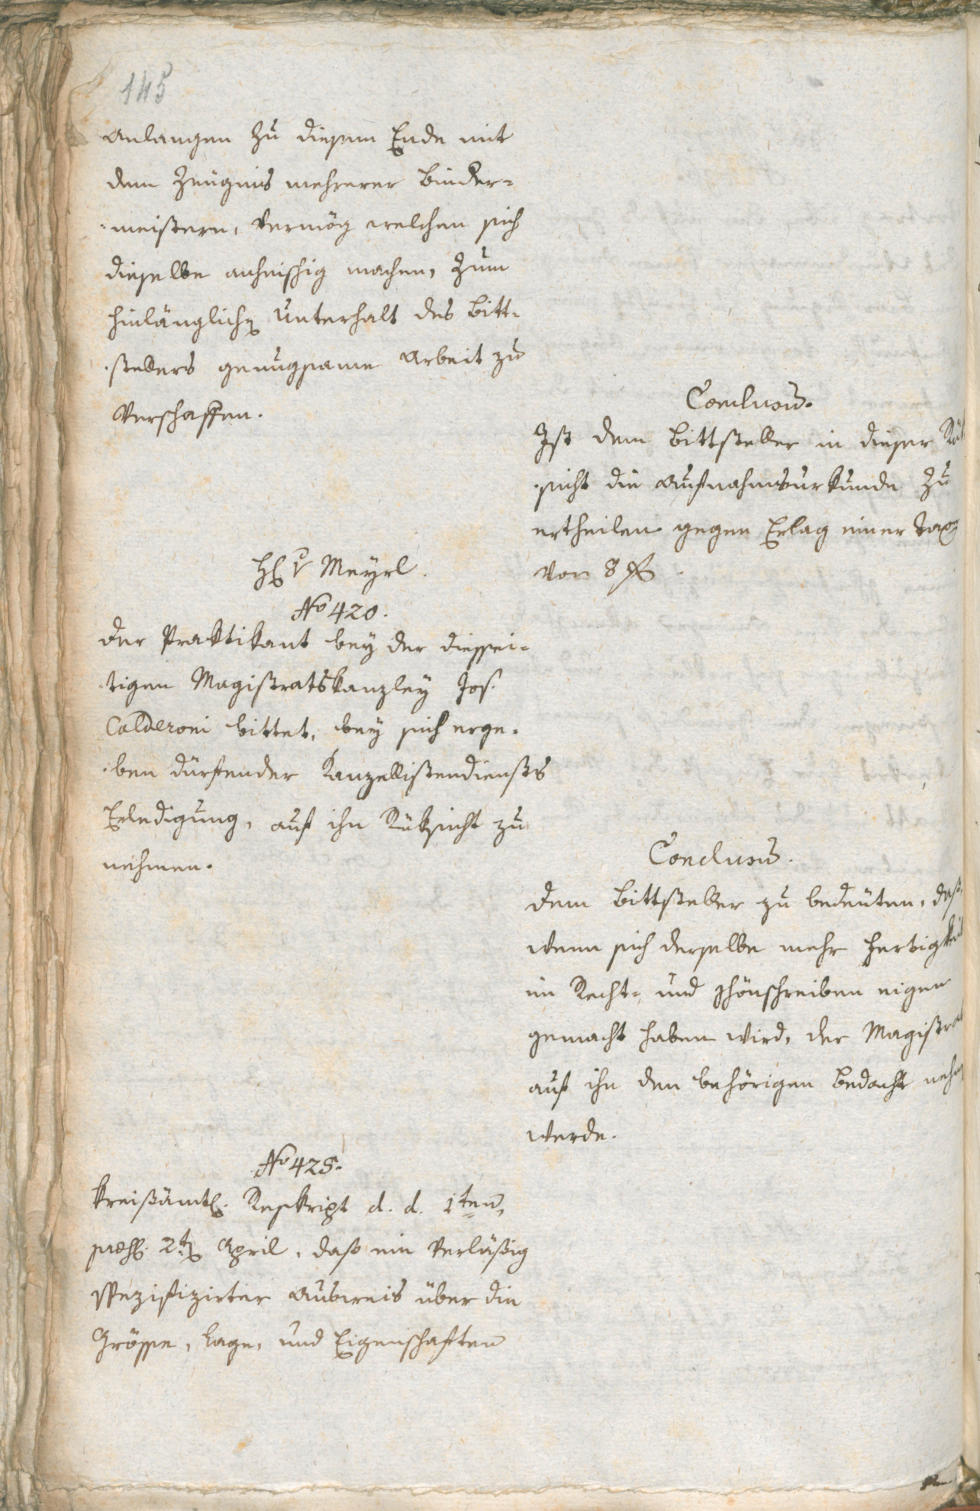 145
Anlangen zu diesem Ende mit
dem Zeugnis mehrerer Binder-
-meistern, Vermög welchen sich
dieselbe anheischig machen, zum
hinlänglich Unterhalt des Bitt-
-stellers genugsame Arbeit zu
Verschaffen.
Conclusū.
Ist dem Bittsteller in dieser Rük
-sicht die Aufnahmsurkunde zu
ertheilen gegen Erlag einer Tax
Von 8 f
H. V Meyrl.
No 420.
Der Praktikant bey der diessei-
-tigen Magistratskanzley Jos.
Calderoni bittet, bey sich erge-
-ben dürfender Kanzellistendiensts
Erledigung, auf ihn Rüksicht zu
nehmen.
Conclusū.
Dem Bittsteller zu bedeuten, daß,
wenn sich derselbe mehr Fertigkeit
im Recht- und schönschreiben eigen
gemacht haben wird, der Magistrat
auf ihn den behörigen Bedacht nehm
werde.
No 425.
Kreißämtl. Reskript d. d. 1ten,
præs. 2t April, daß ein Verläßig
spezifizirter Ausweis über die
Grösse, Lage, und Eigenschaften